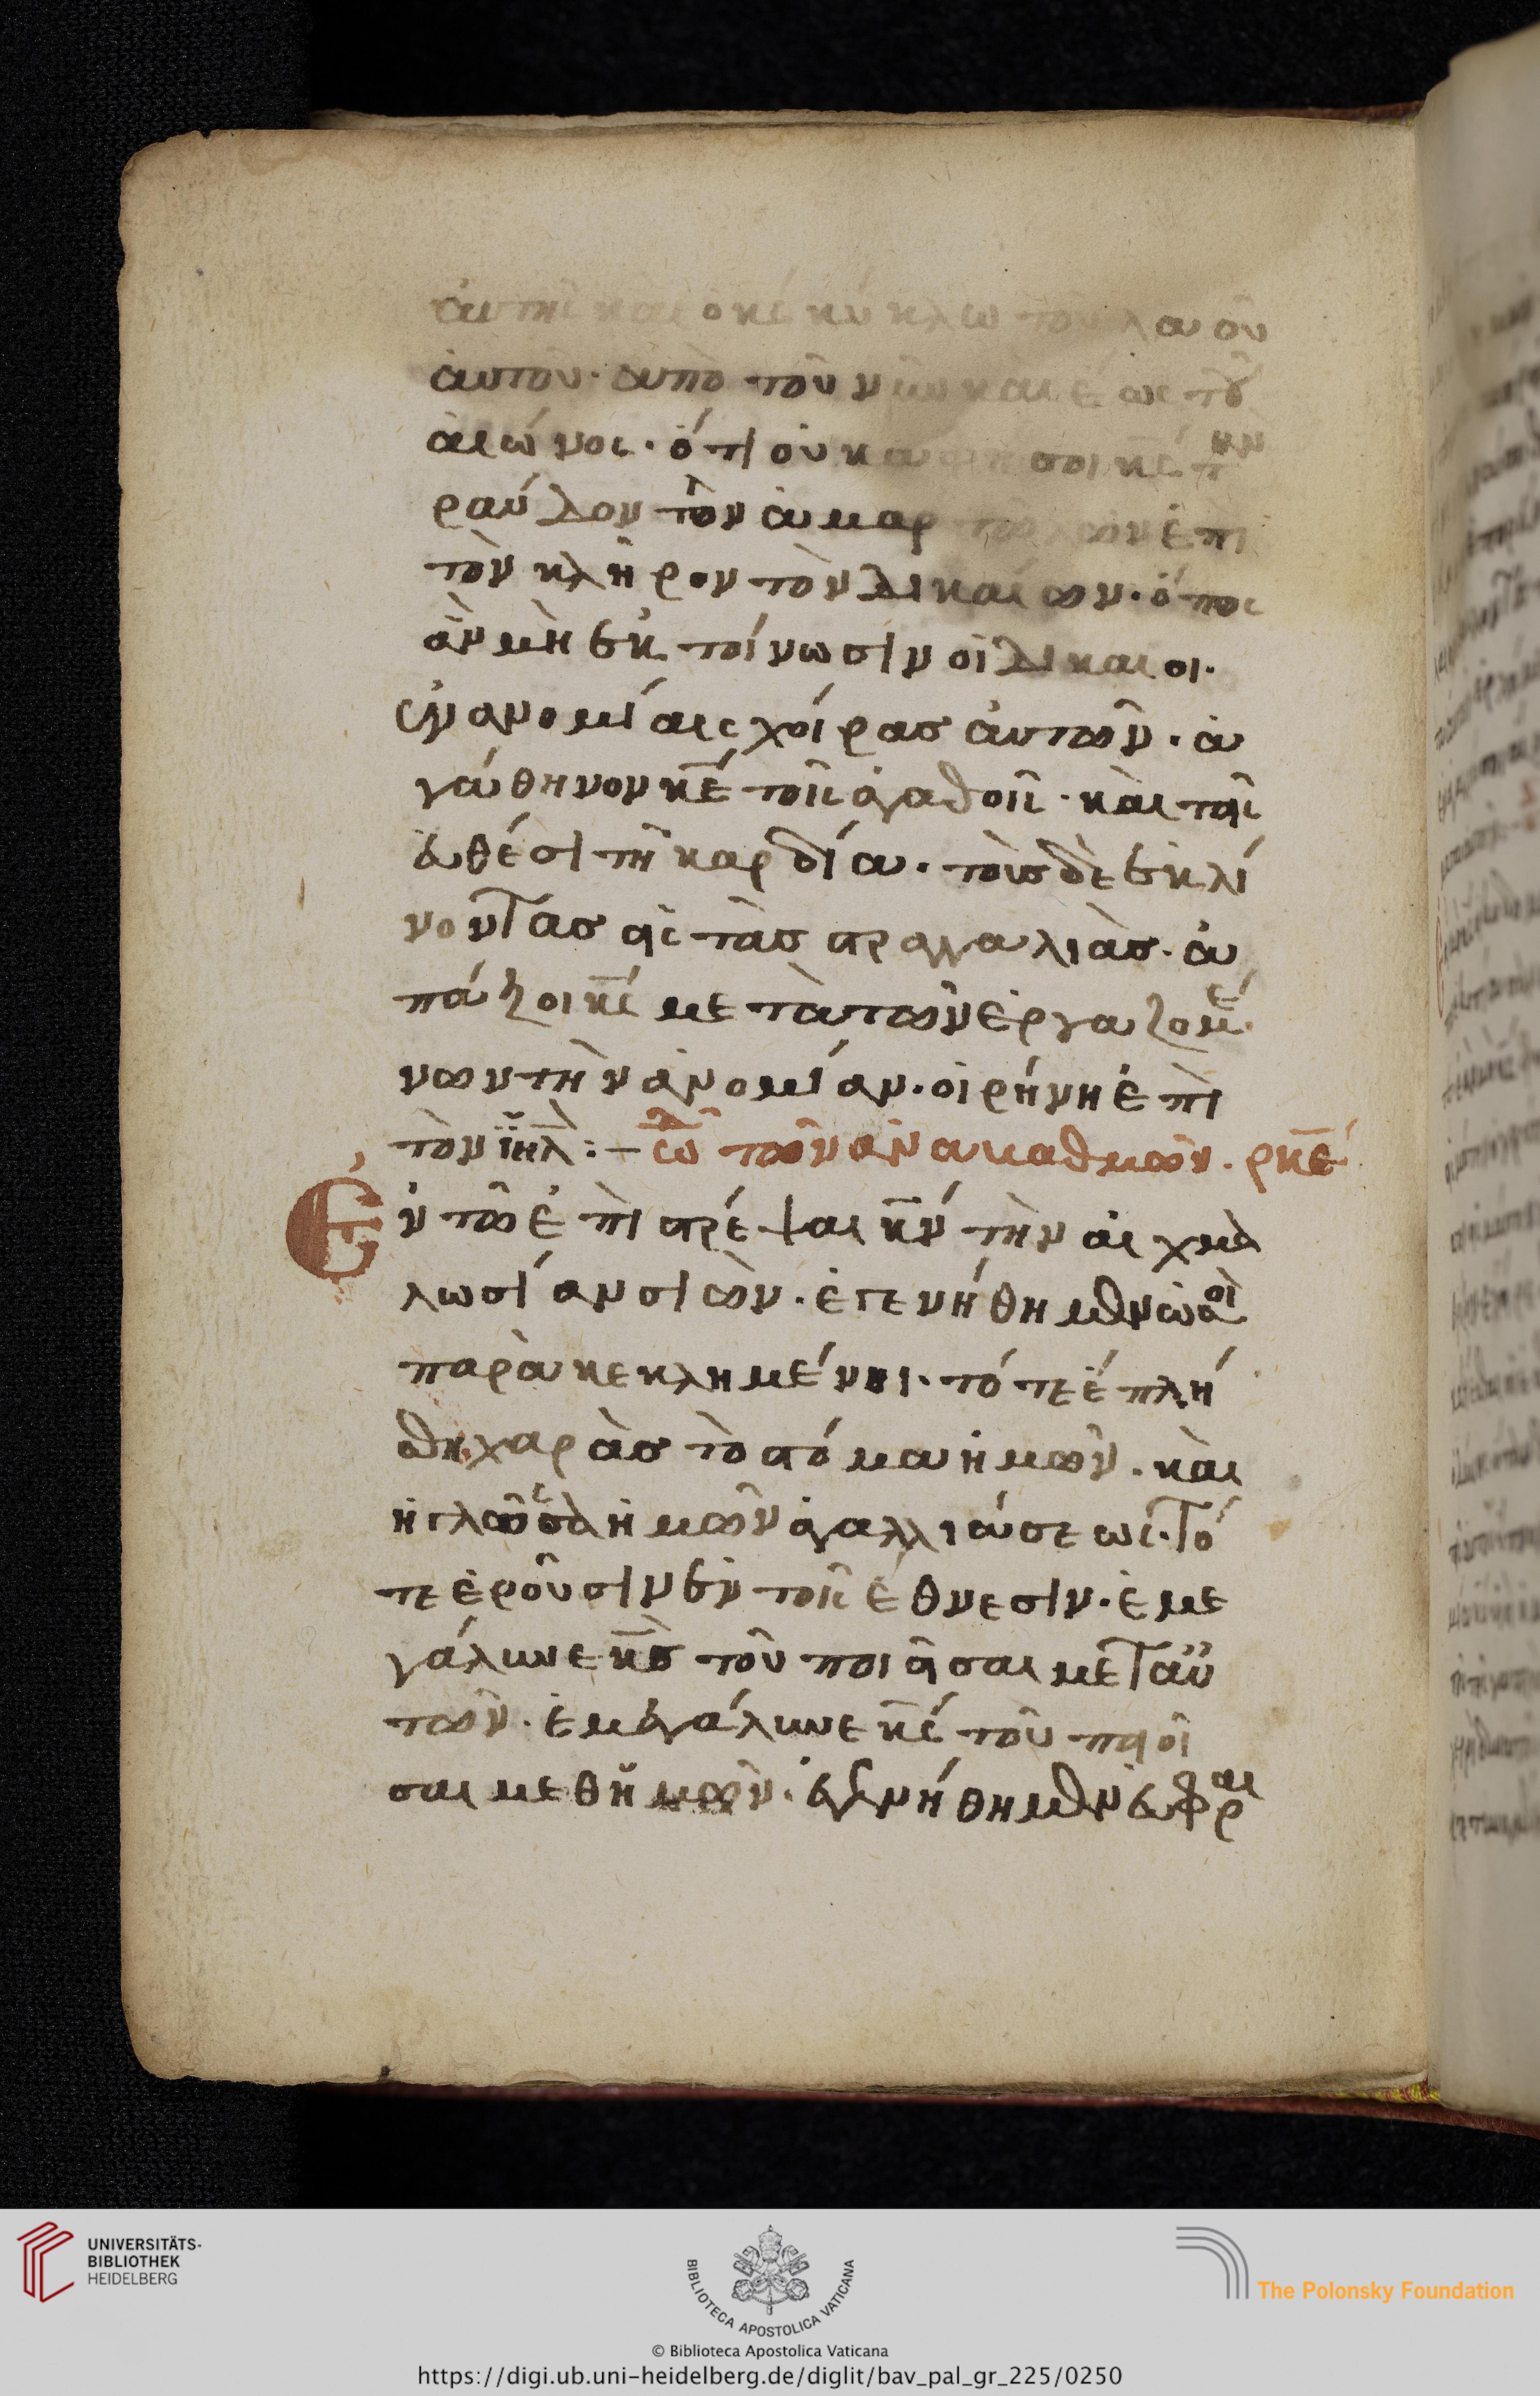 ἀυτῆς καὶ ὁ κς κύκλω τοῦ λαοῦ
ἀυτοῦ· ἀπὸ τοῦ νῦν καὶ ἕως τοῦ
ἀιώνος· ὅτι οὐκ ἀφήσοι κς τὴν
ράυδον τὸν ἁμαρτωλῶν ἐπὶ
τὸν κλῆρον τὸν δικαίων· ὅπος
ἂν μὴ ἐκτοίνωσιν οἱ δίκαιοι·
ἐν ανομίαις χοίρας ἀυτῶν· ἀ
γάθηνον κε τοῖς ἀγαθοῖς· καὶ τοῖς
ἐυθέσι τῆ καρδία· τοὺς δὲ ἐκλί
νοντας εἰς τὰς στραγγαλιὰς· ἀ
πάξοι κς μετὰ τῶν ἐργαζομέ
νων τὴν ἀνομίαν· οἰρήνη ἐπὶ
τὸν ιηλ:– ὠδ τῶν ἀναβαθμῶν· ρκε
Ἐν τῶ ἐπιστρέψαι κν τὴν αἰχμα
λωσίαν σιῶν· ἐγενήθημεν ὡσοὶ
παρὰκεκλημένοι· τότε ἐπλή
σθη χαρὰς τὸ στόμα ἡμῶν· καὶ
ἡ γλῶσσα ἡμῶν ἀγαλλιάσεως· τό
τε ἐροῦσιν ἐν τοῖς ἔθνεσιν· ἐμε
γάλυνε κς τοῦ ποιῆσαι μετ αὐ
τῶν· ἐμεγάλυνε κς τοῦ ποιῆ
σαι μεθ ἡμῶν· ἐγενήθημεν ἐυφραι
UNIVERSITÄTS-
BIBLIOTHEK
HEIDELBERG
BIBLIOTECA APOSTOLICA VATICANA
The Polonsky Foundation
© Biblioteca Apostolica Vaticana
https://digi.ub.uni-heidelberg.de/diglit/bav_pal_gr_225/0250